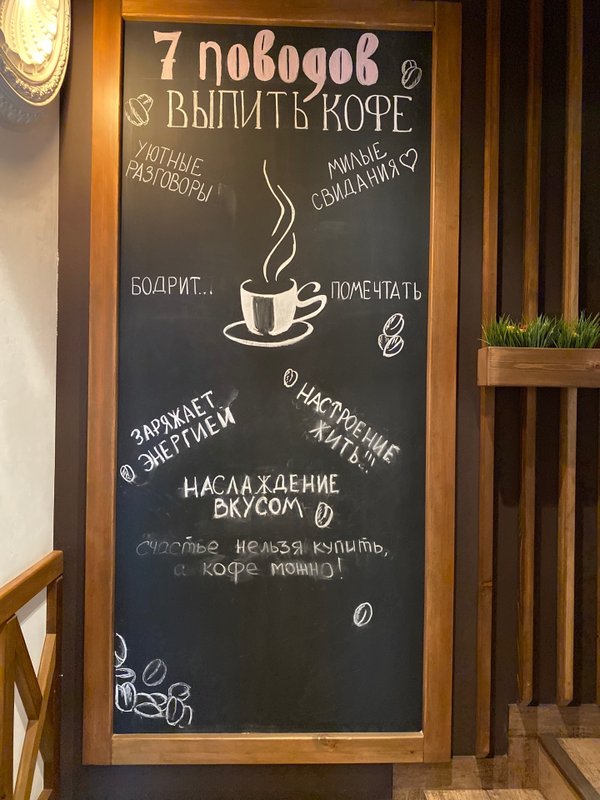 7 поводов
ВЫПИТЬ КОФЕ
УЮТНЫЕ
РАЗГОВОРЫ
МИЛЫЕ
СВИДАНИЯ♡
БОДРИТ...
ПОМЕЧТАТЬ
ЗАРЯЖАЕТ
ЭНЕРГИЕЙ
НАСТРОЕНИЕ
ЖИТЬ!!!
НАСЛАЖДЕНИЕ
ВКУСОМ
счастье нельзя купить,
а кофе можно!